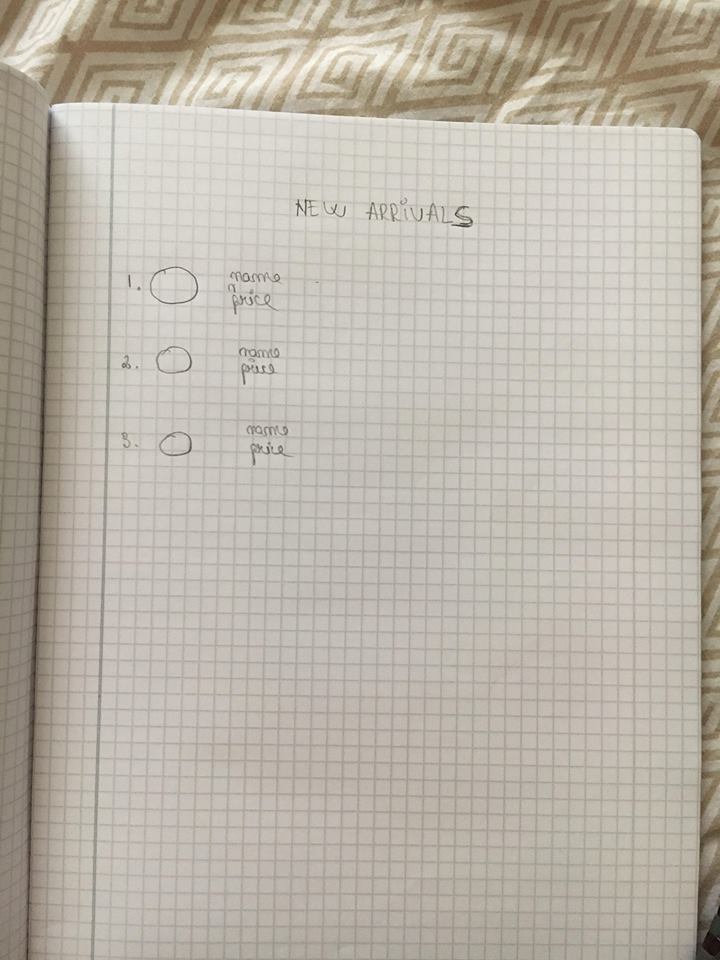 NEW ARRiVALS
1. name
price
2. name
price
3. name
price